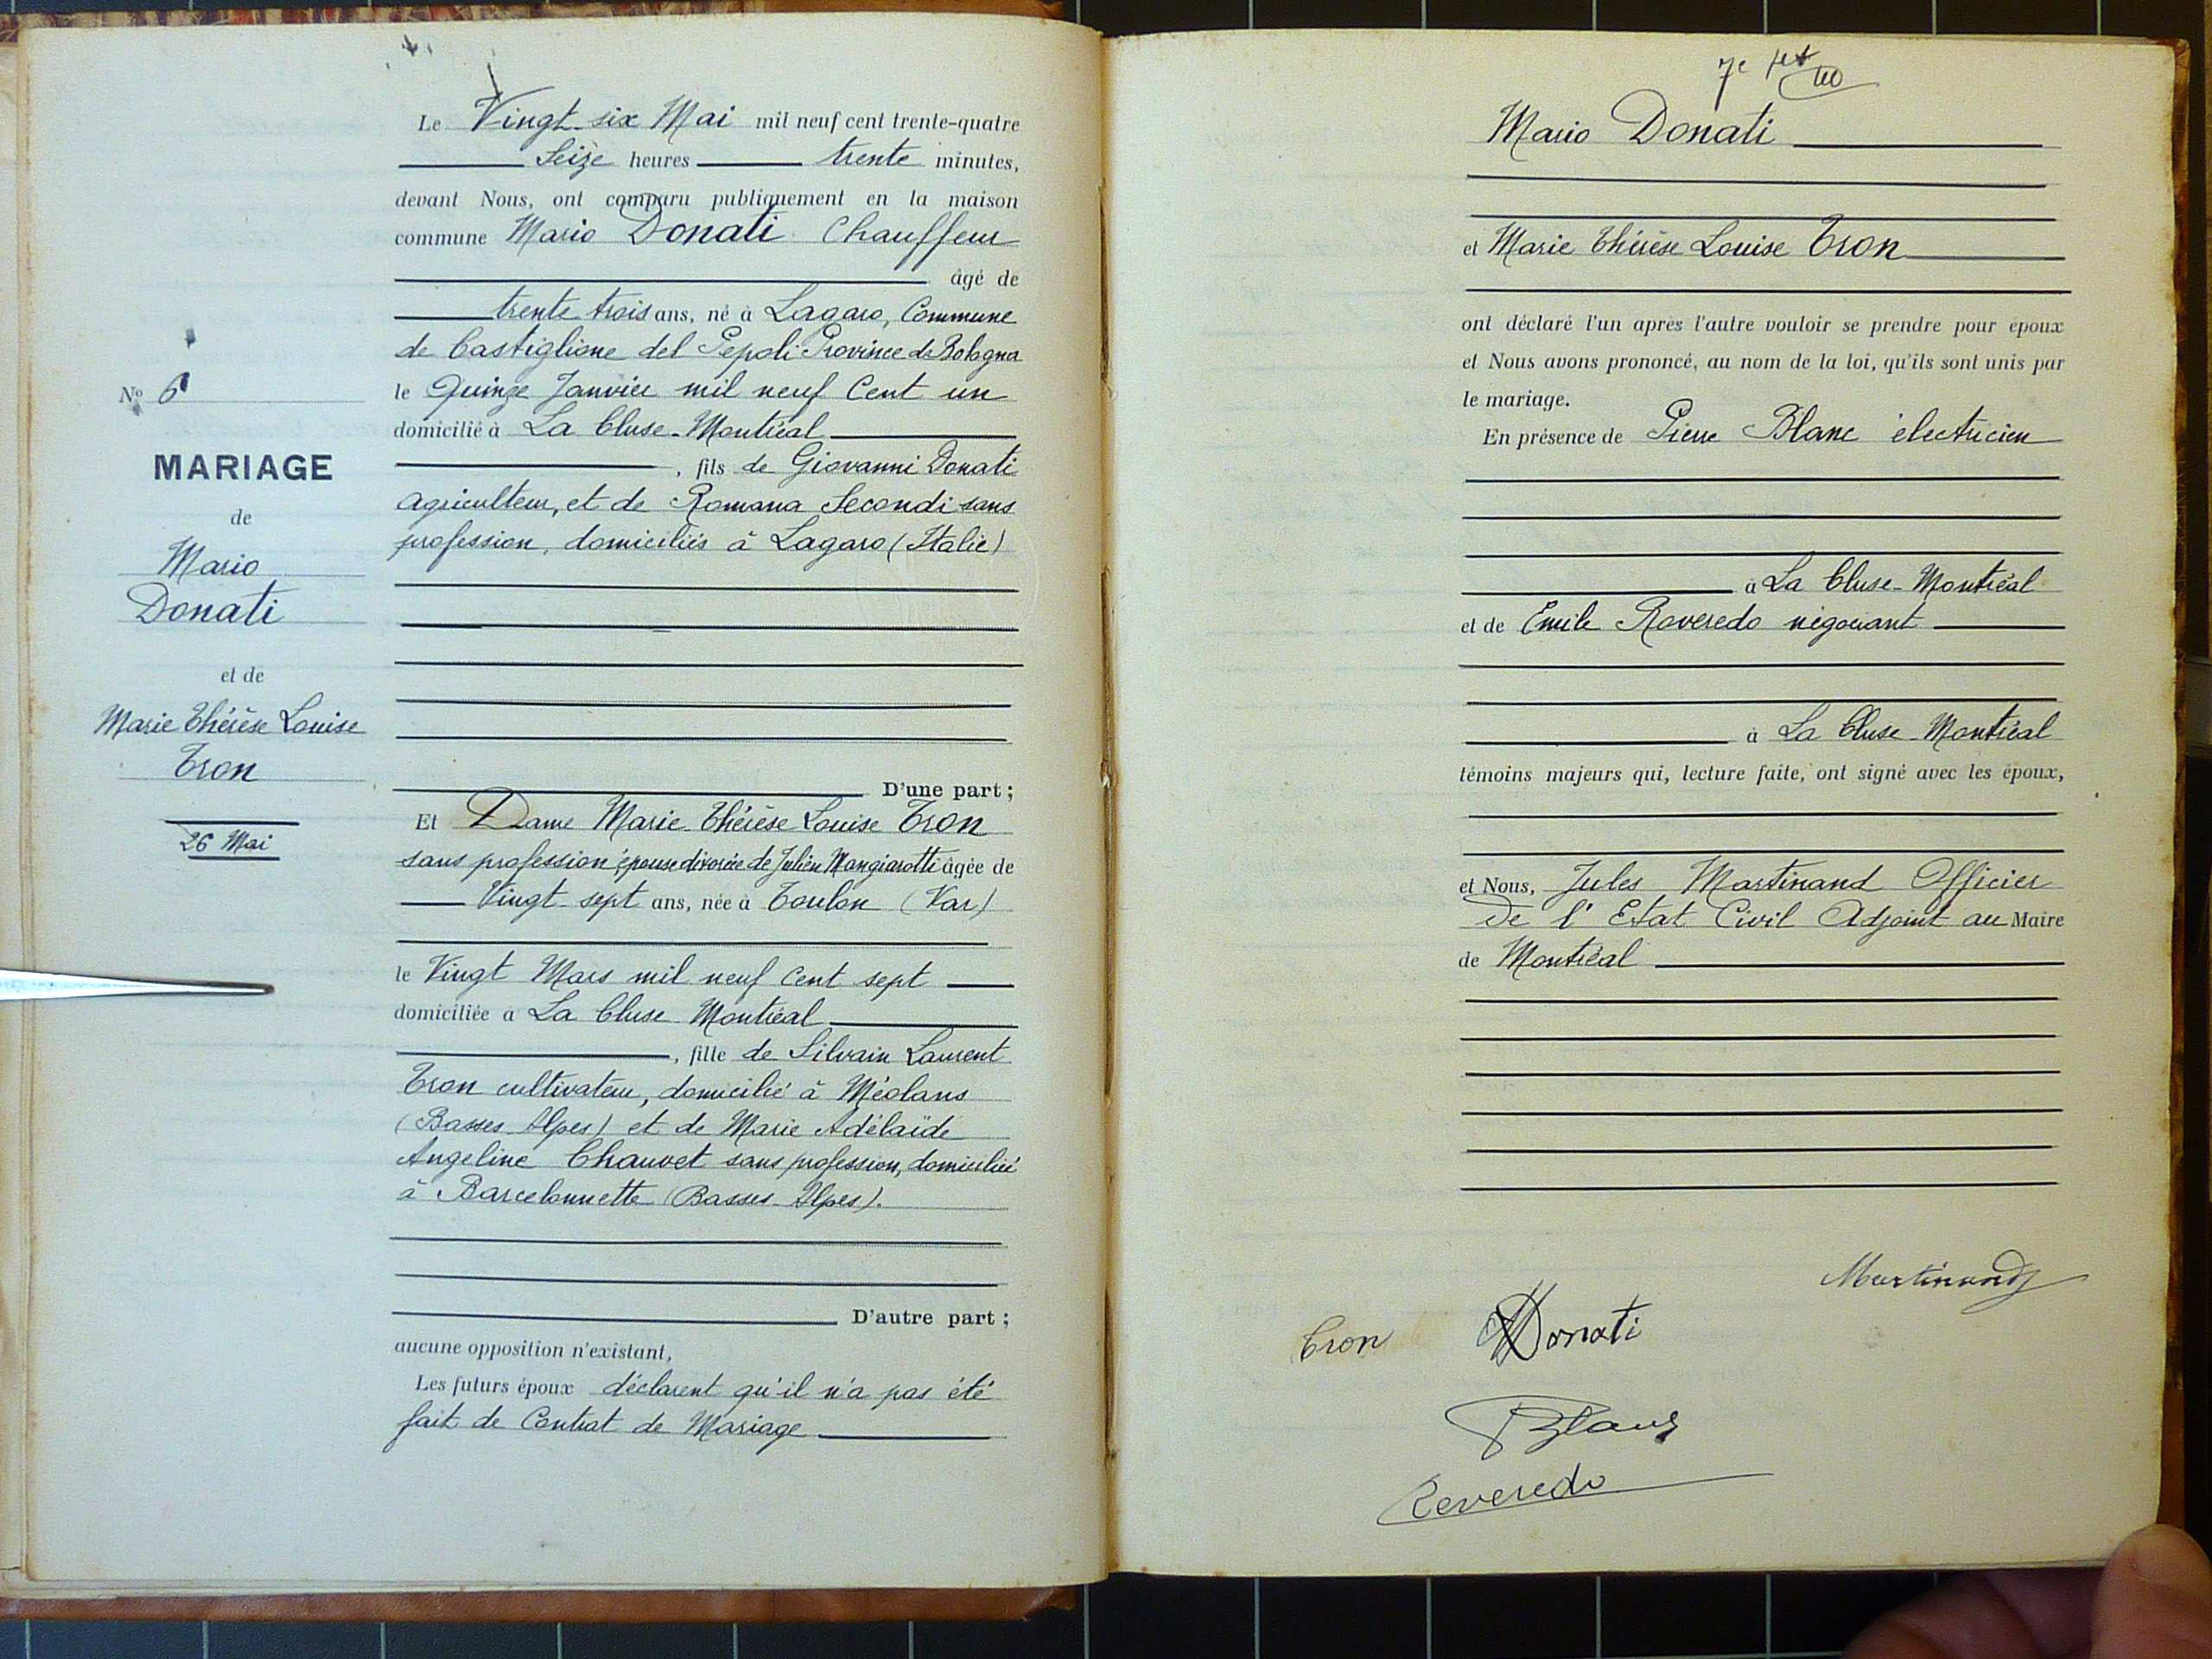 Le Vingt-six Mai mil neuf cent trente-quatre
Seize heures trente minutes,
devant Nous, ont comparu publiquement en la maison
commune Mario Donati Chauffeur
âgé de
trente trois ans, né à Lagaro, Commune
de Castiglione del Pepoli Province de Bologna
le Quinze Janvier mil neuf Cent un
domicilié à La Cluse-Montréal
, fils de Giovanni Donati
agriculteur, et de Romana Secondi sans
profession, domiciliés à Lagaro (Italie)
D'une part ;
Et Dame Marie Thérèse Louise Tron
sans profession épouse divorcée de Julien Mangiarotti âgée de
Vingt-sept ans, née à Toulon (Var)
le Vingt Mars mil neuf Cent sept
domiciliée à La Cluse Montréal
, fille de Silvain Laurent
Tron cultivateur, domicilié à Méolans
(Basses Alpes) et de Marie Adélaïde
Angeline Chauvet sans profession, domiciliée
à Barcelonnette (Basses-Alpes).
D'autre part ;
aucune opposition n'existant,
Les futurs époux déclarent qu'il n'a pas été
fait de Contrat de Mariage
No 6
MARIAGE
de
Mario
Donati
et de
Marie Thérèse Louise
Tron
26 Mai
7e
Mario Donati
et Marie Thérèse Louise Tron
ont déclaré l'un après l'autre vouloir se prendre pour époux
et Nous avons prononcé, au nom de la loi, qu'ils sont unis par
le mariage.
En présence de Pierre Blanc électricien
à La Cluse-Montréal
et de Emile Roveredo négociant
à La Cluse-Montréal
témoins majeurs qui, lecture faite, ont signé avec les époux,
et Nous, Jules Martinand Officier
De l'Etat Civil Adjoint au Maire
de Montréal
Martinand
Tron Donati
Blanc
Reveredo